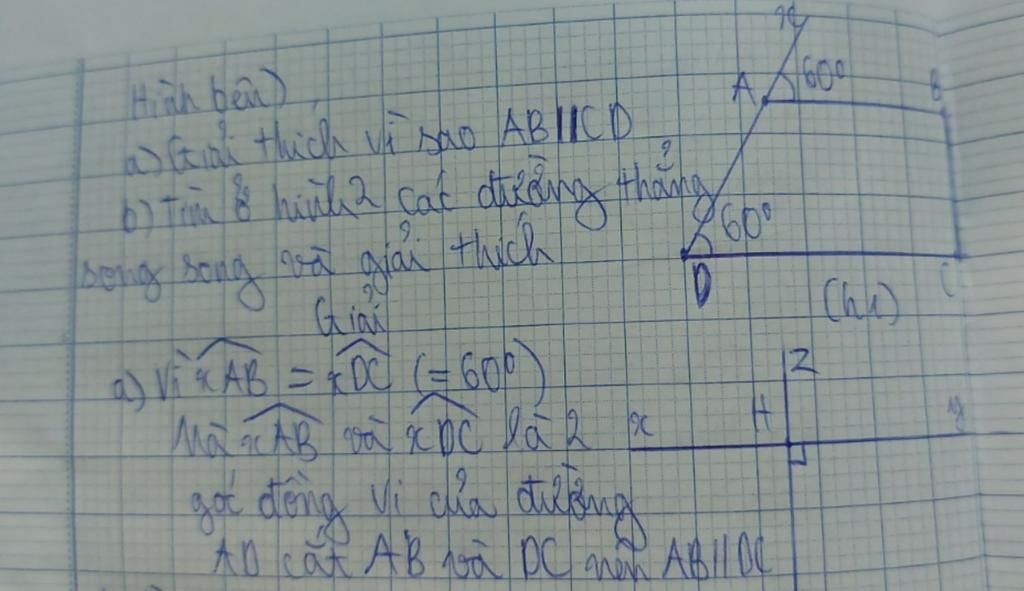 Hình bên)
a) Giải thích vì sao AB//CD
b) Tìm ở hình 2 các đường thẳng
song song và giải thích
Giải
a) Vì xAB = xDC (=60°)
Mà xAB và xDC là 2
góc đồng vị của đường
AD cắt AB và DC nên AB//DC
x
A 60° B
60°
D C
(h1)
z
x H y